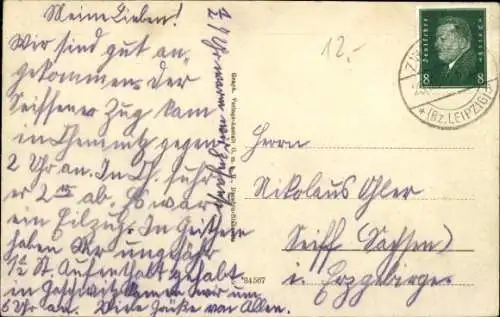 Meine Lieben!
Wir sind gut an-
gekommen. Der
Seiffener Zug kam
in Chemnitz gegen
2 Uhr an. In Ch. fuhr
er 2 ab. Es war
ein Eilzug. In Geithein
haben wir ungefähr
1½ St. Aufenthalt gehabt
in kamen wir um
5 Uhr an. Viele Grüße von Allen.
½ 9 Uhr waren wir
12.-
Deutsches Reich
8 8
(Bz. LEIPZIG)
Herrn
Nikolaus Ohler
Seiff (Sachsen)
i. Erzgebirge
94567